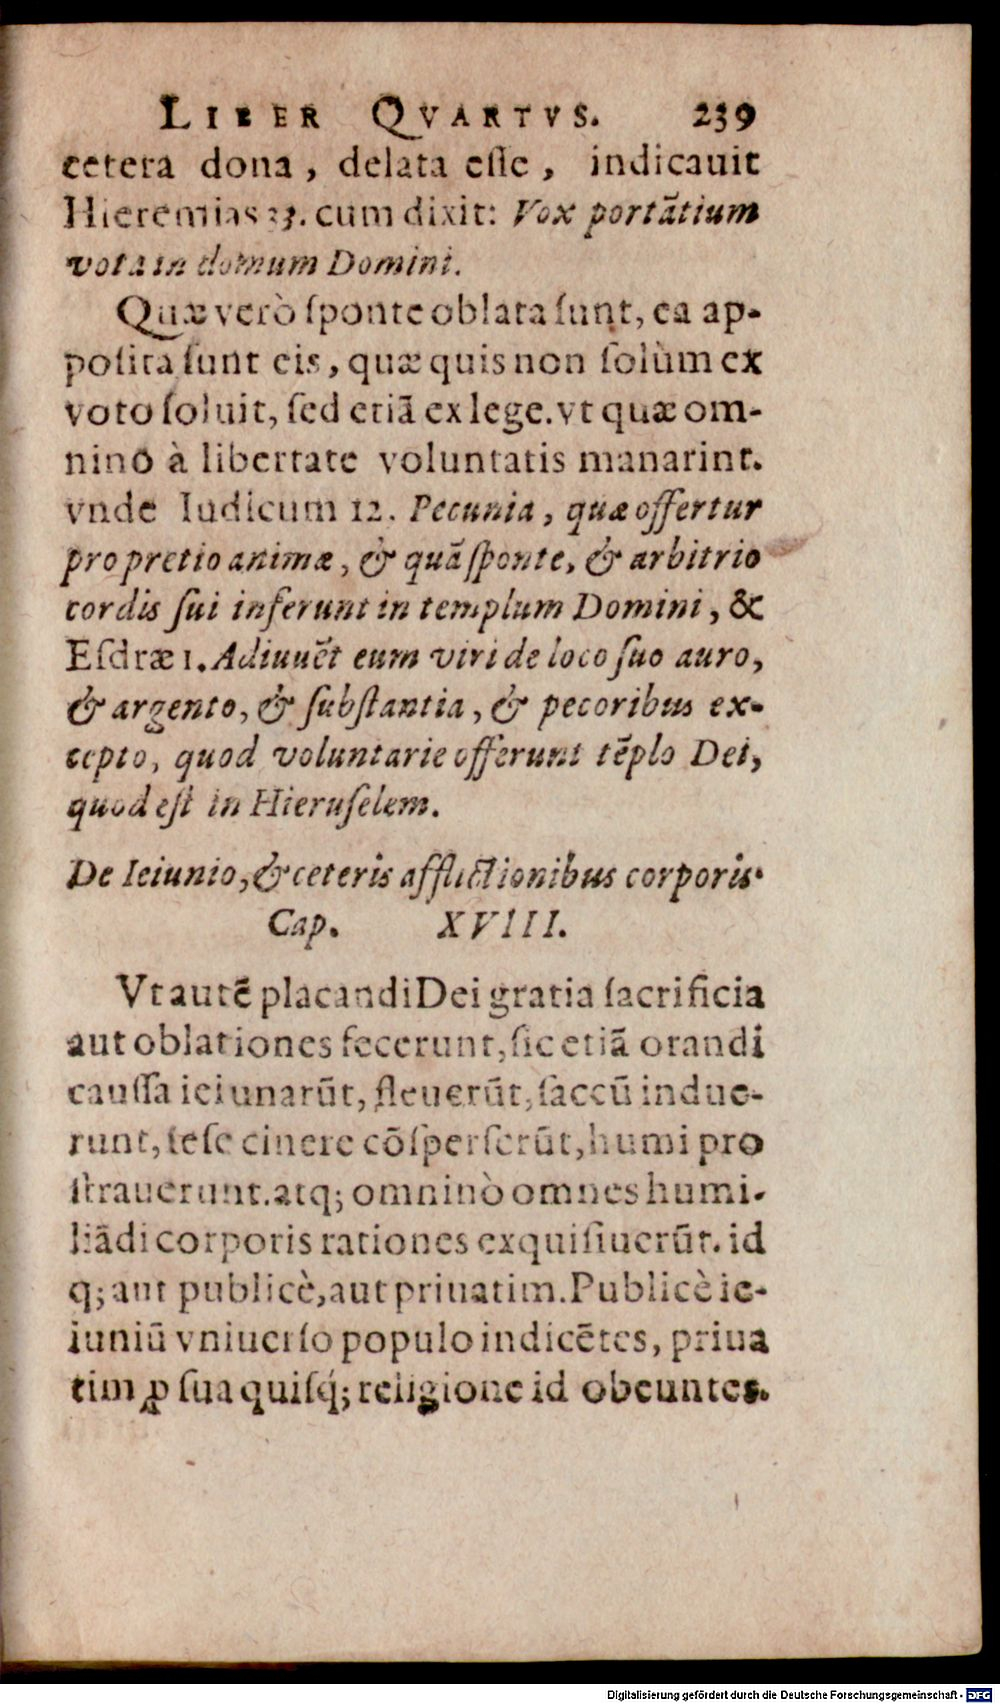 LIBER QVARTVS. 239
cetera dona, delata eſſe, indicauit
Hieremias 33. cum dixit: Vox portātium
vota in domum Domini.
Quæ verò ſponte oblata ſunt, ea ap-
poſita ſunt eis, quæ quis non ſolùm ex
voto ſoluit, ſed etiā ex lege. vt quæ om-
nino à libertate voluntatis manarint.
vnde Iudicum 12. Pecunia, quæ offertur
pro pretio animæ, & quā ſponte, & arbitrio
cordis ſui inferunt in templum Domini, &
Eſdræ 1. Adiuuēt eum viri de loco ſuo auro,
& argento, & ſubſtantia, & pecoribus ex-
cepto, quod voluntarie offerunt tēplo Dei,
quod eſt in Hieruſelem.
De Ieiunio, & ceteris afflictionibus corporis.
Cap. XVIII.
Vt autē placandi Dei gratia ſacrificia
aut oblationes fecerunt, ſic etiā orandi
cauſſa ieiunarūt, fleuerūt, ſaccū indue-
runt, ſeſe cinere cōſperſerūt, humi pro
ſtrauerunt. atq; omninò omnes humi-
liādi corporis rationes exquiſiuerūt. id
q; aut publicè, aut priuatim. Publicè ie-
iuniū vniuerſo populo indicētes, priua
tim ꝓ ſua quiſq́; religione id obeuntes.
Digitalisierung gefördert durch die Deutsche Forschungsgemeinschaft - DFG